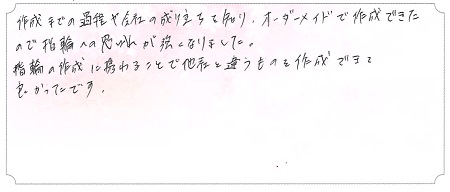 作成までの過程や会社の成り立ちを知り、オーダーメイドで作成できた
ので指輪への思い入れが強くなりました。
指輪の作成に携わることで他社と違うものを作成できて
良かったです。